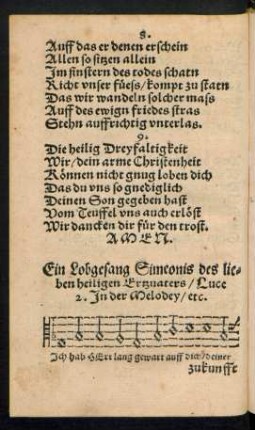 8.
Auff das er denen erschein
Allen so sitzen allein
Im finstern des todes schatn
Richt vnser füess/kompt zu statn
Das wir wandeln solcher mass
Auff des ewign friedes stras
Stehn auffrichtig vnterlas.
9.
Die heilig Dreyfaltigkeit
Wir/dein arme Christenheit
Können nicht gnug loben dich
Das du vns so gnediglich
Deinen Son gegeben hast
Vom Teuffel vns auch erlöst
Wir dancken dir für den trost.
AMEN.
Ein Lobgesang Simeonis des lie-
ben heiligen Ertzuaters/Luce
2. In der Melodey/etc.
Ich hab HErr lang gewart auff dich/deiner
zukunfft